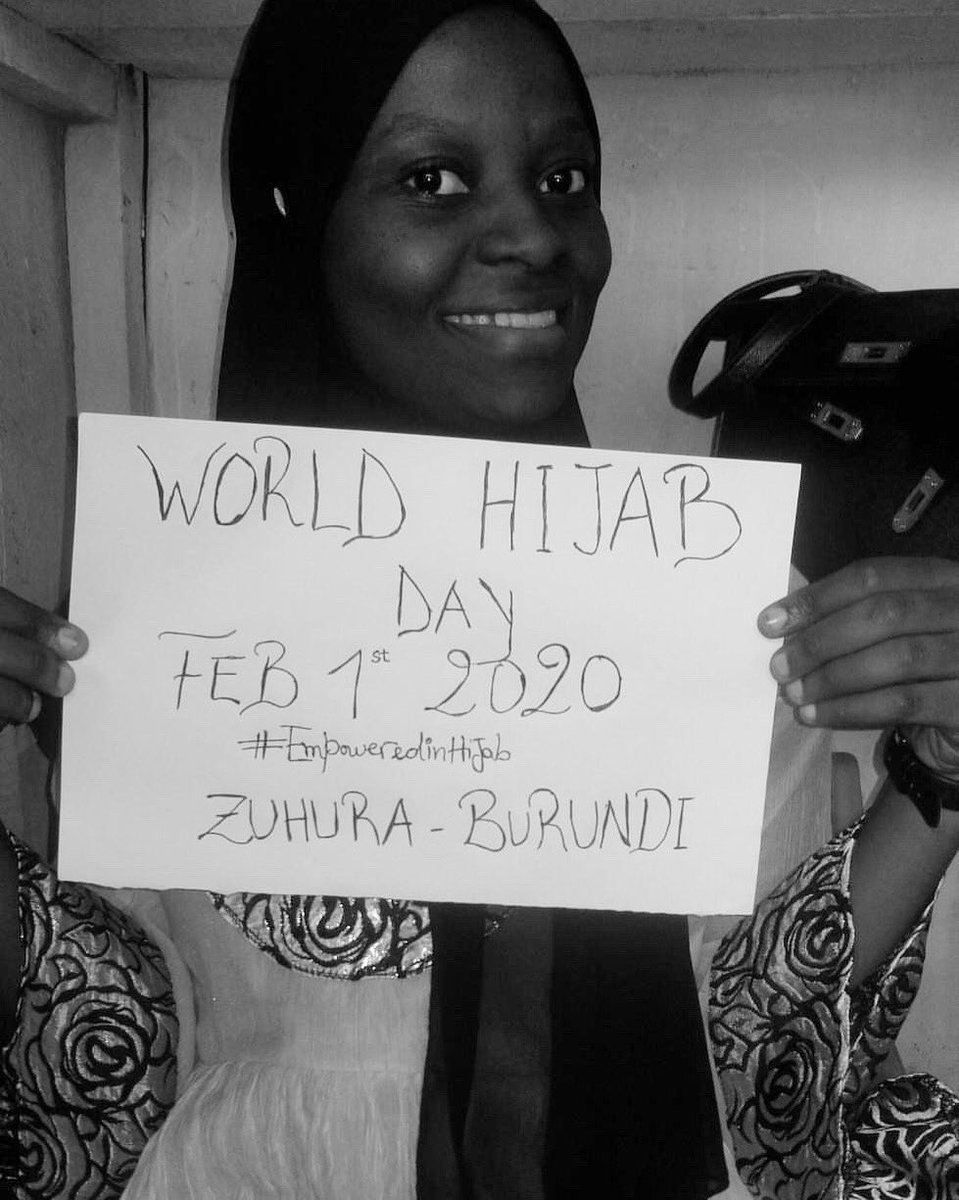 WORLD HIJAB
DAY
FEB 1st 2020
#EmpoweredinHijab
ZUHURA - BURUNDI